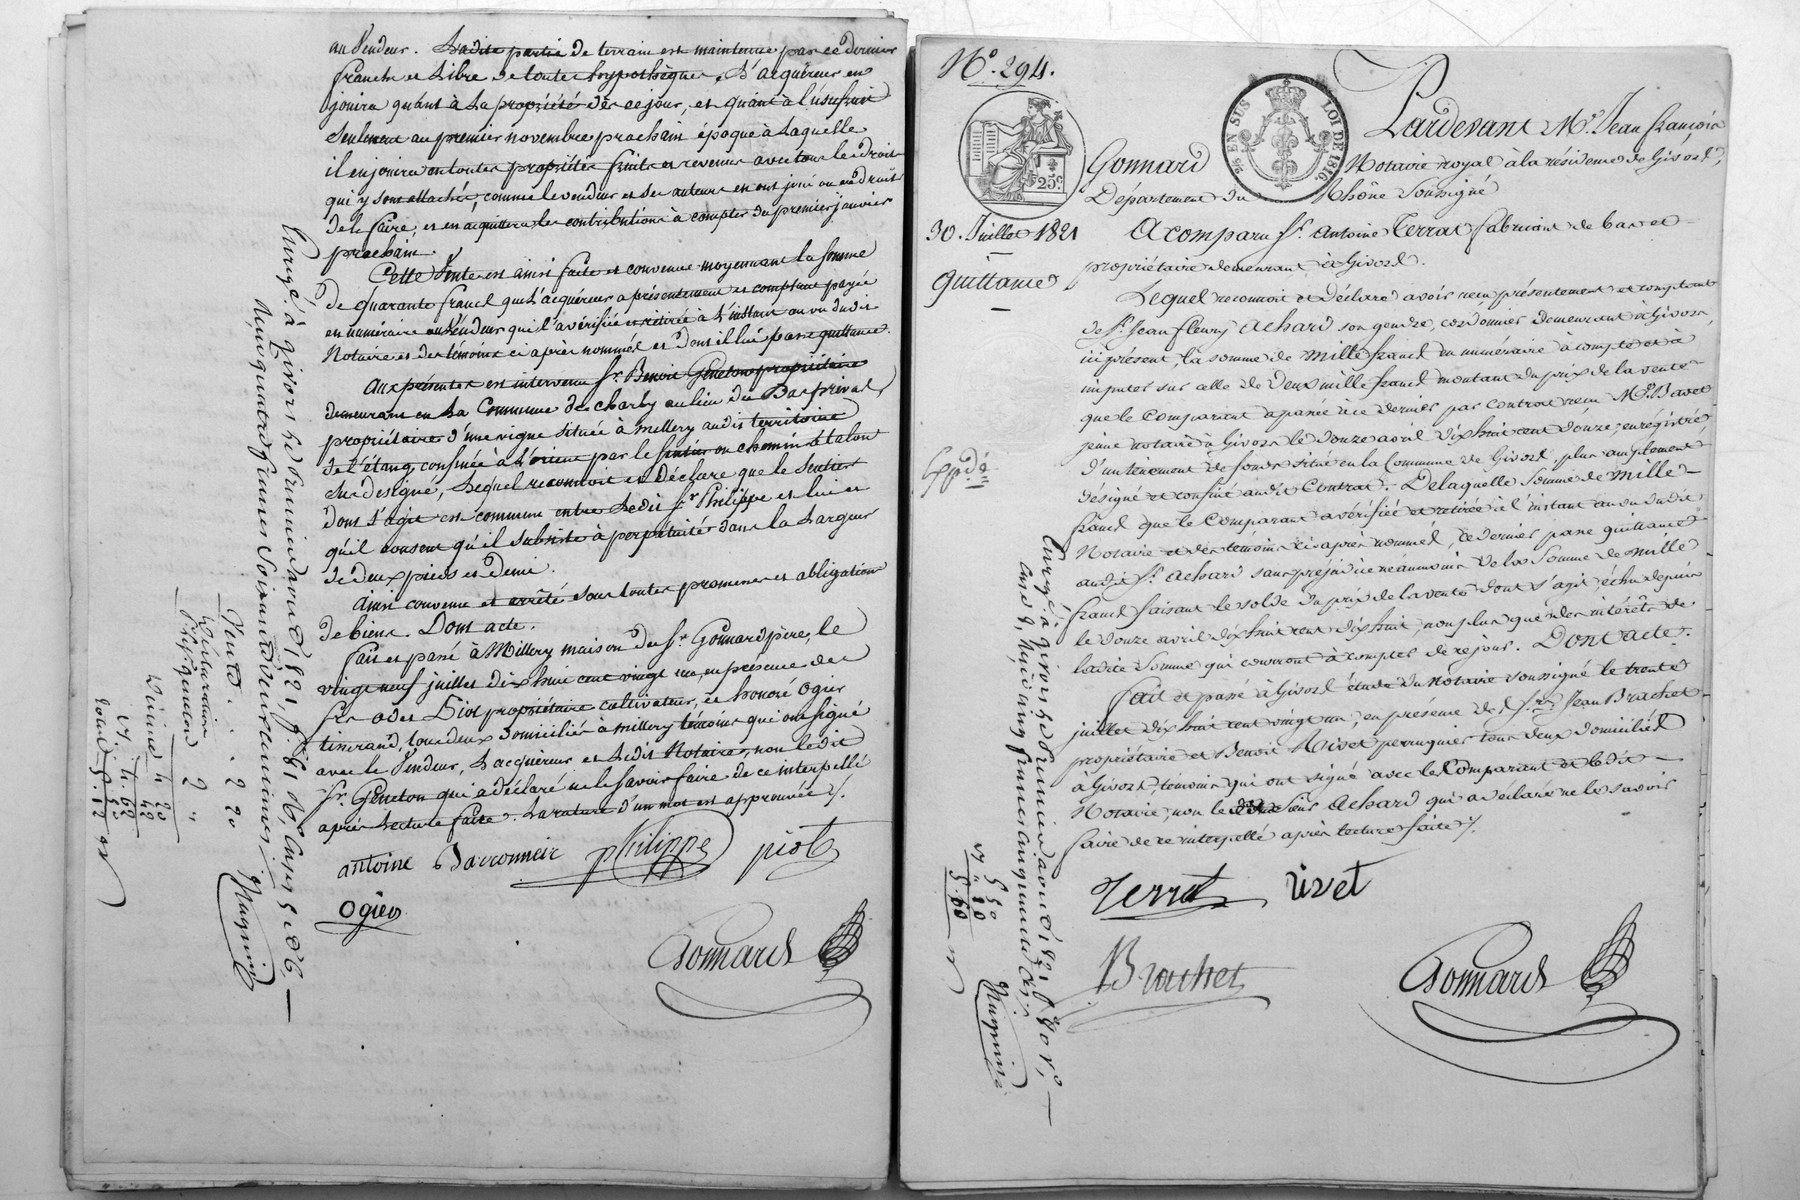 au Vendeur. Ladite partie de terrain est maintenue par ce dernier
franche et Libre de toutes hypothèques. L'acquéreur en
jouira quant à La propriété dès ce jour, et quant à l'usufruit
seulement au premier novembre prochain époque à Laquelle
il en jouira en toutes propriétés fruits et revenus avec tous les droits
qui y sont attachés, comme le vendeur et ses auteurs en ont joui ou eu droit
de le faire, et en acquittera les contributions à compter du premier janvier
prochain.
Cette Vente est ainsi faite et convenue moyennant la somme
de quarante francs que L'acquéreur a présentement et comptant payée
en numéraire au Vendeur qui l'a vérifiée et retirée à l'instant au vu dudit
Notaire et des témoins ci après nommés et dont il lui passe quittance.
Aux présentes est intervenu Sr. Benoit Géneton propriétaire
demeurant en La Commune de Charly au lieu du Bas frival,
propriétaire d'une vigne située à Millery audit territoire
de L'étang, confinée à l'orient par le sentier ou chemin à talon
sus désigné, Lequel reconnoit et Déclare que le Sentier
Dont s'agit est commun entre Ledit Sr. Philippe et lui et
qu'il consent qu'il subsiste à perpétuité dans la Largeur
de deux pieds et demi.
Ainsi convenu et arrêté sous toutes promesses et obligation
de biens. Dont acte.
fait et passé à Millery maison du Sr. Gonnard père, le
vingt neuf juillet dix huit cent vingt un, en présence des
Srs Odet Piot propriétaire cultivateur, et honoré Ogier
tisserand, tous deux domiciliés à Millery témoins qui ont signé
avec le Vendeur, L'acquéreur et Ledit Notaire, non ledit
Sr. Géneton qui a déclaré ne le savoir faire de ce interpellé
après Lecture faite. La rature d'un mot est approuvée ./.
antoine Philippe piot
Ogier
Gonnard
Vente . . 2 20
Déclaration
2 "
4 20
Magnin
No. 294.
2es EN SUS LOI DE 1816
25c
Pardevant Me. Jean françois
Gonnard Notaire royal à la résidence de Givors,
Département du Rhône Soussigné
30. Juillet 1821
A comparu Sr. Antoine Terrat fabricant de bas et
propriétaire demeurant à Givors.
Quittance
Lequel reconnoit et déclare avoir reçu présentement et comptant
de Sr. Jean fleury Achard son gendre, cordonnier demeurant à Givors,
ici présent, la somme de Mille francs en numéraire à compte et à
imputer sur celle de Deux mille francs montant du prix de la vente
que le Comparant a passée à ce dernier par contrat reçu Me. Bavet
jeune notaire à Givors le douze avril dix huit cent douze, enregistré
d'un tenement de fonds situé en la Commune de Givors, plus amplement
Expdé
désigné et confiné audit Contrat. De laquelle Somme de Mille
francs que le Comparant a vérifiée et retirée à l'instant au vu dudit
Notaire et des témoins ci après nommés, ce dernier passe quittance
audit Sr. Achard sans préjudice néanmoins de la Somme de Mille
francs faisant le solde du prix de la vente dont s'agit, échu depuis
le douze avril dix huit cent dix huit non plus que des intérêts de
ladite Somme qui courront à compter de ce jour. Dont acte.
fait et passé à Givors étude du Notaire soussigné le trente
juillet dix huit cent vingt un, en présence de Srs. Jean Brachet
propriétaire et Benoit Rivet perruquier tous deux domiciliés
à Givors, témoins qui ont signé avec le Comparant et ledit
Notaire, non le sieur Achard qui a déclaré ne le savoir
faire de ce interpellé après lecture faite ./.
Terrat rivet
Brachet Gonnard
5 50
5.60
Magnin